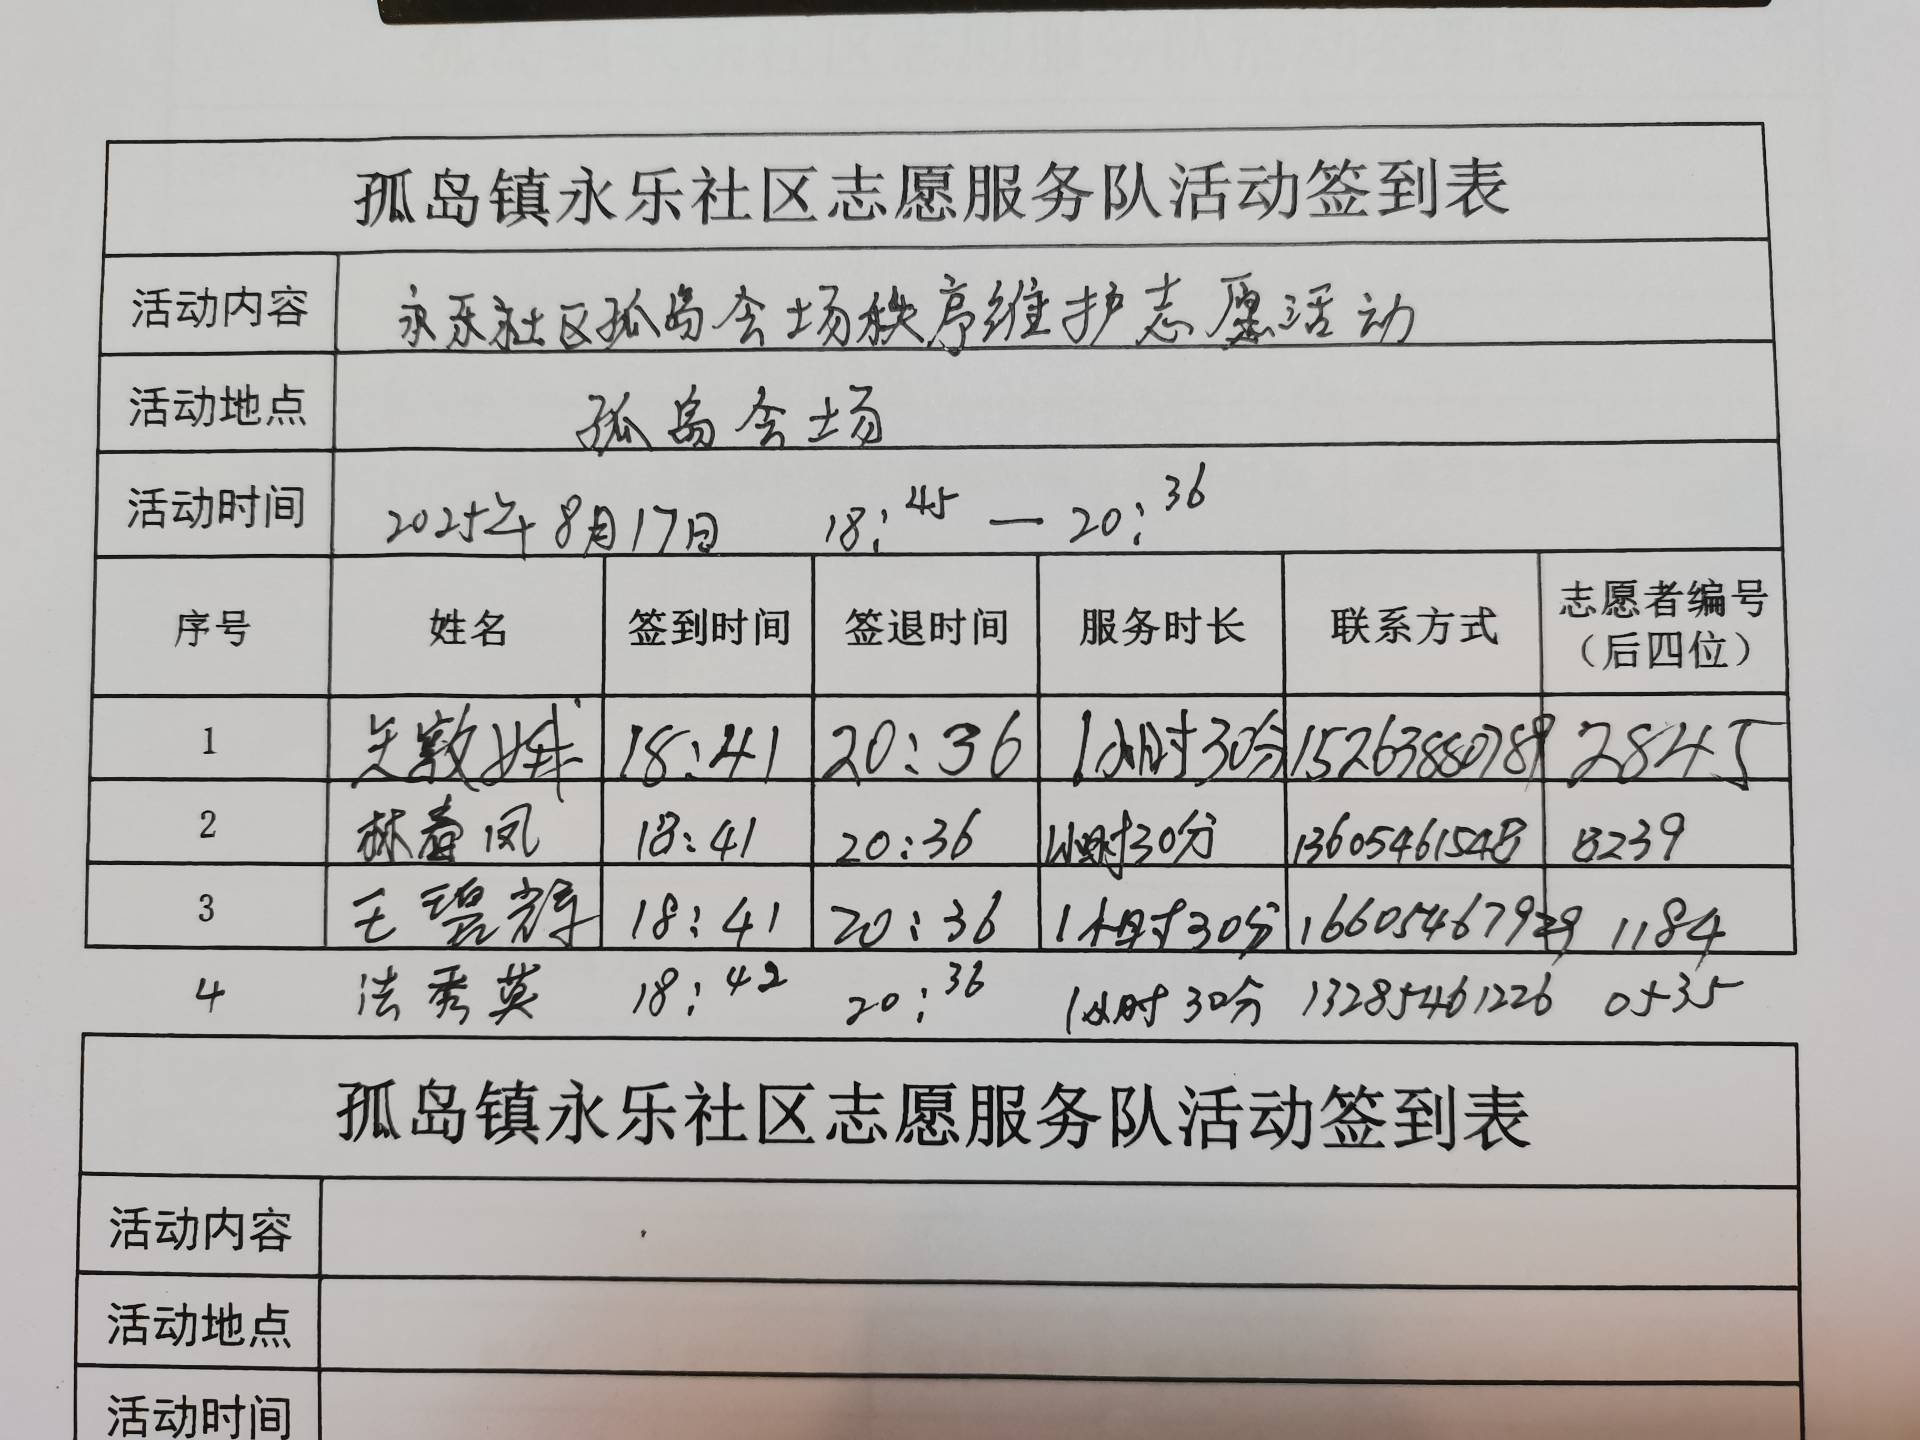 孤岛镇永乐社区志愿服务队活动签到表
活动内容 永乐社区孤岛会场秩序维护志愿活动
活动地点 孤岛会场
活动时间 2025年8月17日 18:45—20:36
序号 姓名 签到时间 签退时间 服务时长 联系方式 志愿者编号
（后四位）
1 18:41 20:36 1小时30分 15263880789 2845
2 林春凤 18:41 20:36 1小时30分 13605461548 8239
3 王碧辉 18:41 20:36 1小时30分 1184
4 法秀英 18:42 20:36 1小时30分 13285461226 0535
孤岛镇永乐社区志愿服务队活动签到表
活动内容
活动地点
活动时间